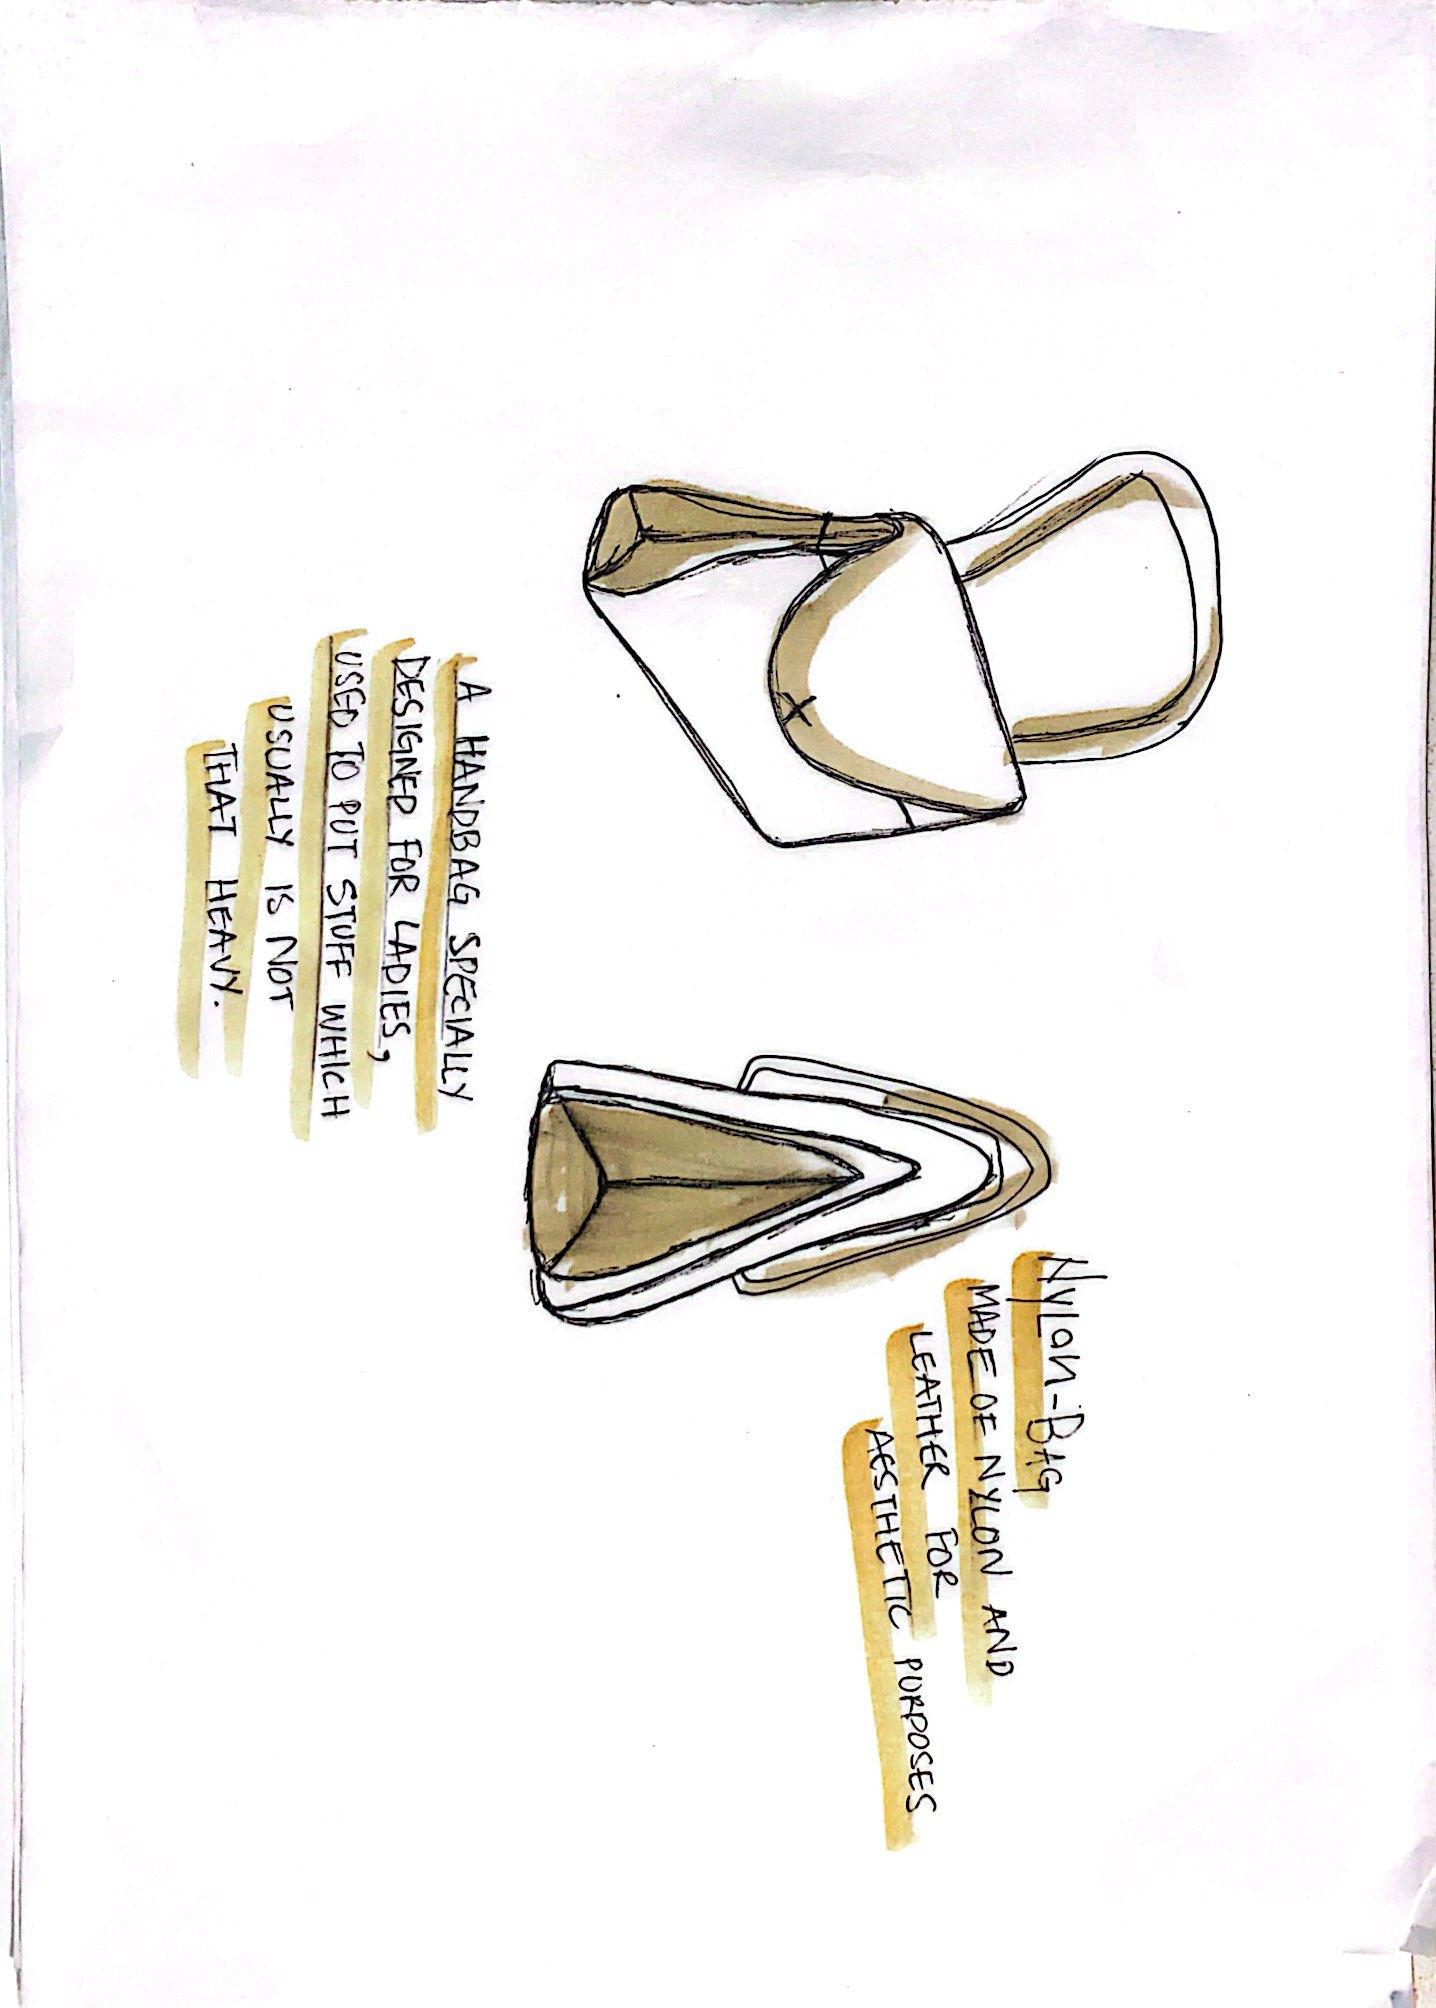 NyLon-BAG
MADE OF NYLON AND
LEATHER FOR
AESTHETIC PURPOSES
A HANDBAG SPECIALLY
DESIGNED FOR LADIES,
USED TO PUT STUFF WHICH
USUALLY IS NOT
THAT HEAVY.